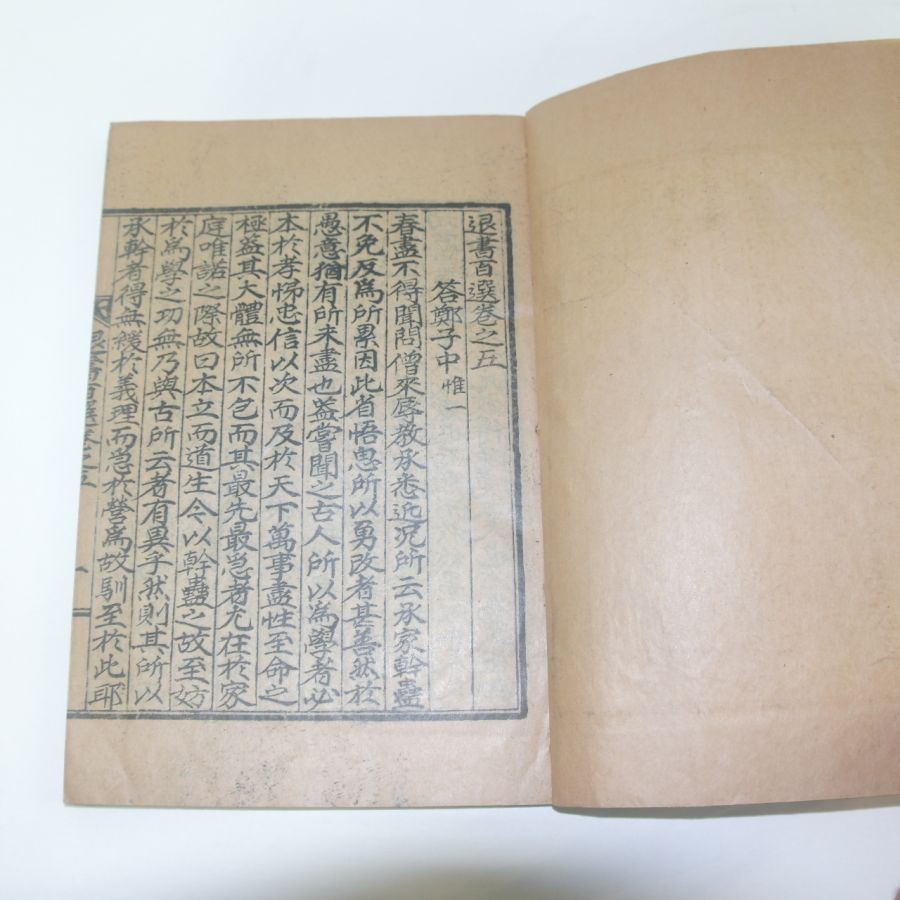 退書百選卷之五
答鄭子中 惟一
春盡不得聞問僧來辱教承悉近况所云承家幹蠱
不免反爲所累因此省悟思所以勇改者甚善然於
愚意猶有所未盡也蓋嘗聞之古人所以爲學者必
本於孝悌忠信以次而及於天下萬事盡性至命之
極蓋其大體無所不包而其最先最急者尤在於家
庭唯諾之際故曰本立而道生今以幹蠱之故至妨
於爲學之功無乃與古所云者有異乎然則其所以
承幹者得無緩於義理而急於營爲故馴至於此耶
退書百選卷之五
一